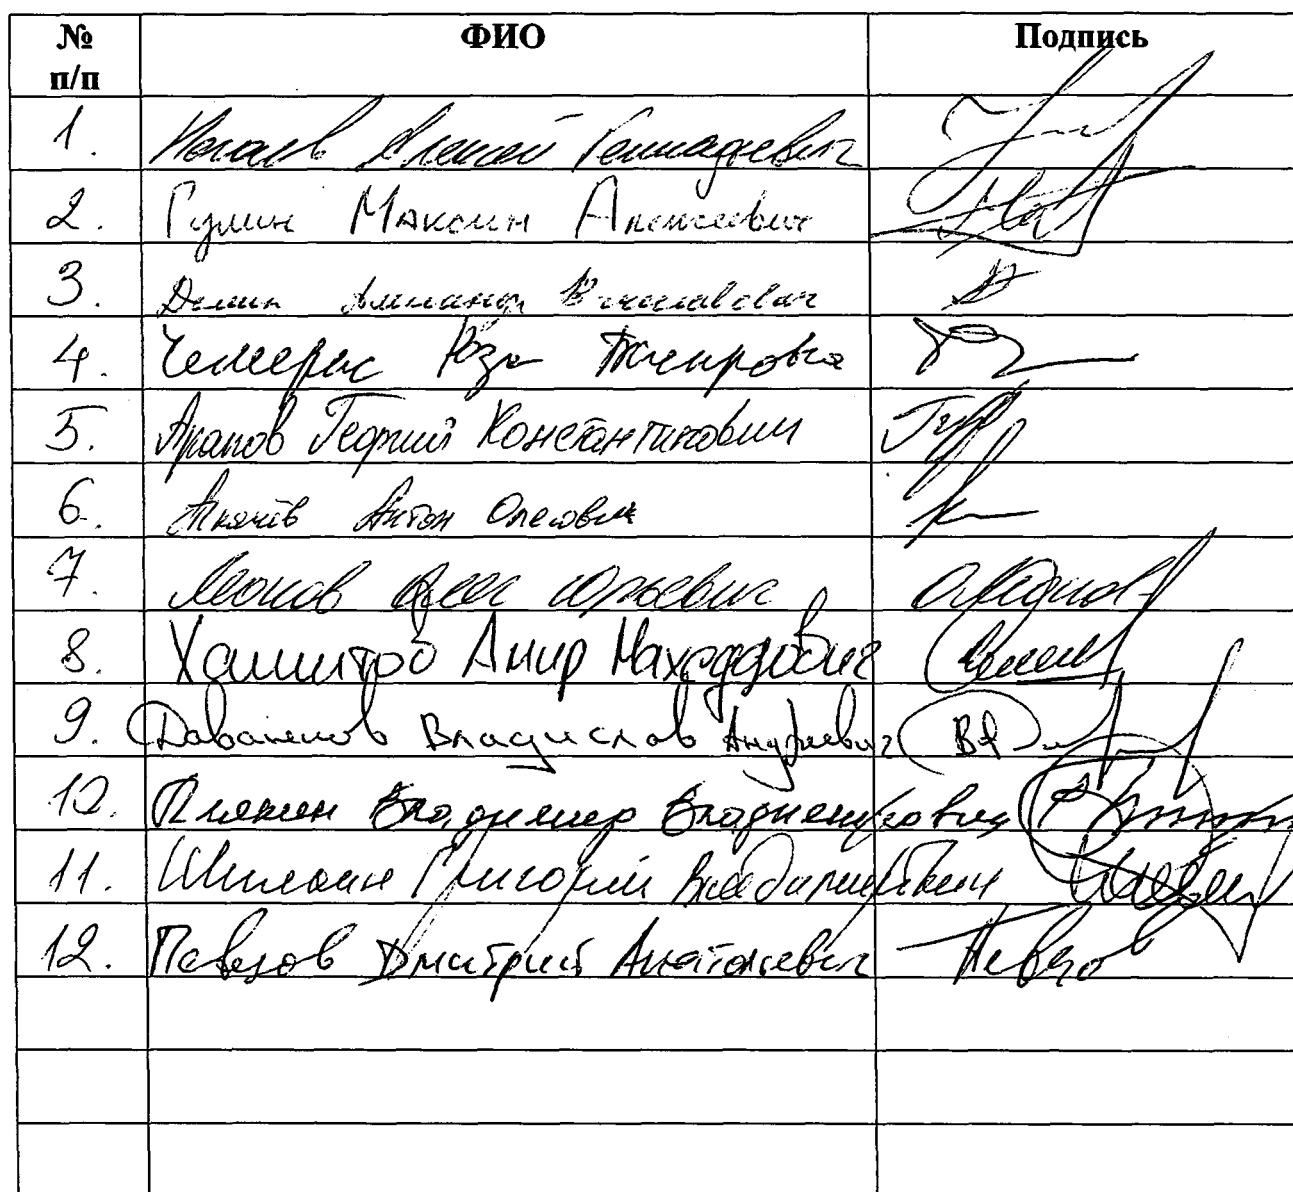 № п/п ФИО Подпись
1. Нечаев Алексей Геннадьевич
2. Гулин Максим Алексеевич
3. Демин Александр Вячеславович
4. Чемерис Роза Тагировна
5. Арапов Георгий Константинович
6. Ткачёв Антон Олегович
7. Леонов Олег Юрьевич
8. Хамитов Амир Махсудович
9. Даванков Владислав Андреевич
10. Плякин Владимир Владимирович
11. Шилкин Григорий Владимирович
12. Певцов Дмитрий Анатольевич Певцов